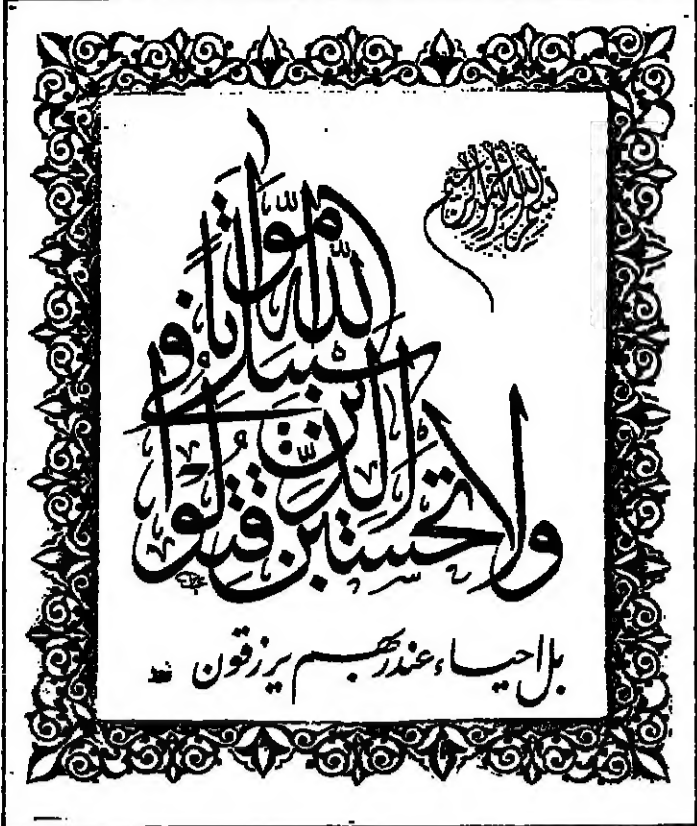 بسم الله الرحمن الرحيم
ولا تحسبن الذين قتلوا في سبيل الله أمواتا
بل احياء عند ربهم يرزقون